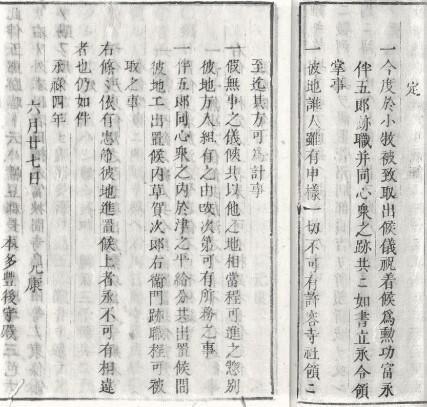 定
一今度於小牧被致取出候儀祝着候爲勲功富永
伴五郎跡職并同心衆之跡共ニ如書立永令領
掌事
一彼地誰人雖有申樣一切不可有許容寺社領ニ
至迄其方可爲計事
一假無事之儀候共以他之地相當程可進之惣別
彼地方人組有之由改次第可有所務之事
一伴五郎同心衆之内於津之平給分共出置候間
彼地工出置候内草賀次郎右衞門跡職程可被
取之事
右條〻依有忠節彼地進置候上者永不可有相違
者也仍如件
永祿四年
六月廿七日　元康
本多豊後守殿